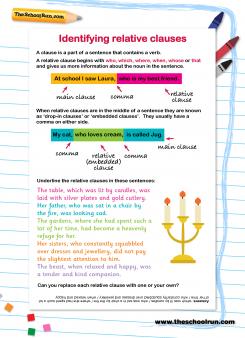 TheSchoolRun.com
Identifying relative clauses
A clause is a part of a sentence that contains a verb.
A relative clause begins with who, which, where, when, whose or that
and gives us more information about the noun in the sentence.
At school I saw Laura, who is my best friend.
main clause
comma
relative
clause
When relative clauses are in the middle of a sentence they are known
as 'drop-in clauses' or 'embedded clauses'. They usually have a
comma on either side.
My cat, who loves cream, is called Jug.
comma
relative
(embedded)
clause
comma
main clause
Underline the relative clauses in these sentences:
The table, which was lit by candles, was
laid with silver plates and gold cutlery.
Her father, who was sat in a chair by
the fire, was looking sad.
The gardens, where she had spent such a
lot of her time, had become a heavenly
refuge for her.
Her sisters, who constantly squabbled
over dresses and jewellery, did not pay
the slightest attention to him.
The beast, when relaxed and happy, was
a tender and kind companion.
Can you replace each relative clause with one or your own?
www.theschoolrun.com